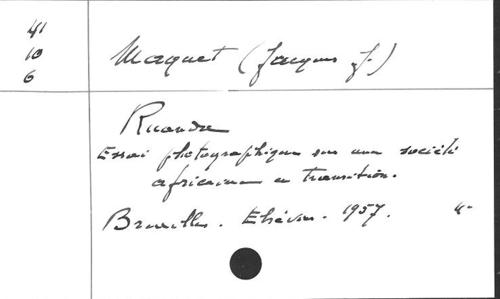 41
10
6
Maquet (Jacques J.)
Ruanda
Essai photographique sur une société
africaine en transition.
Bruxelles. Elsévier. 1957. 4°